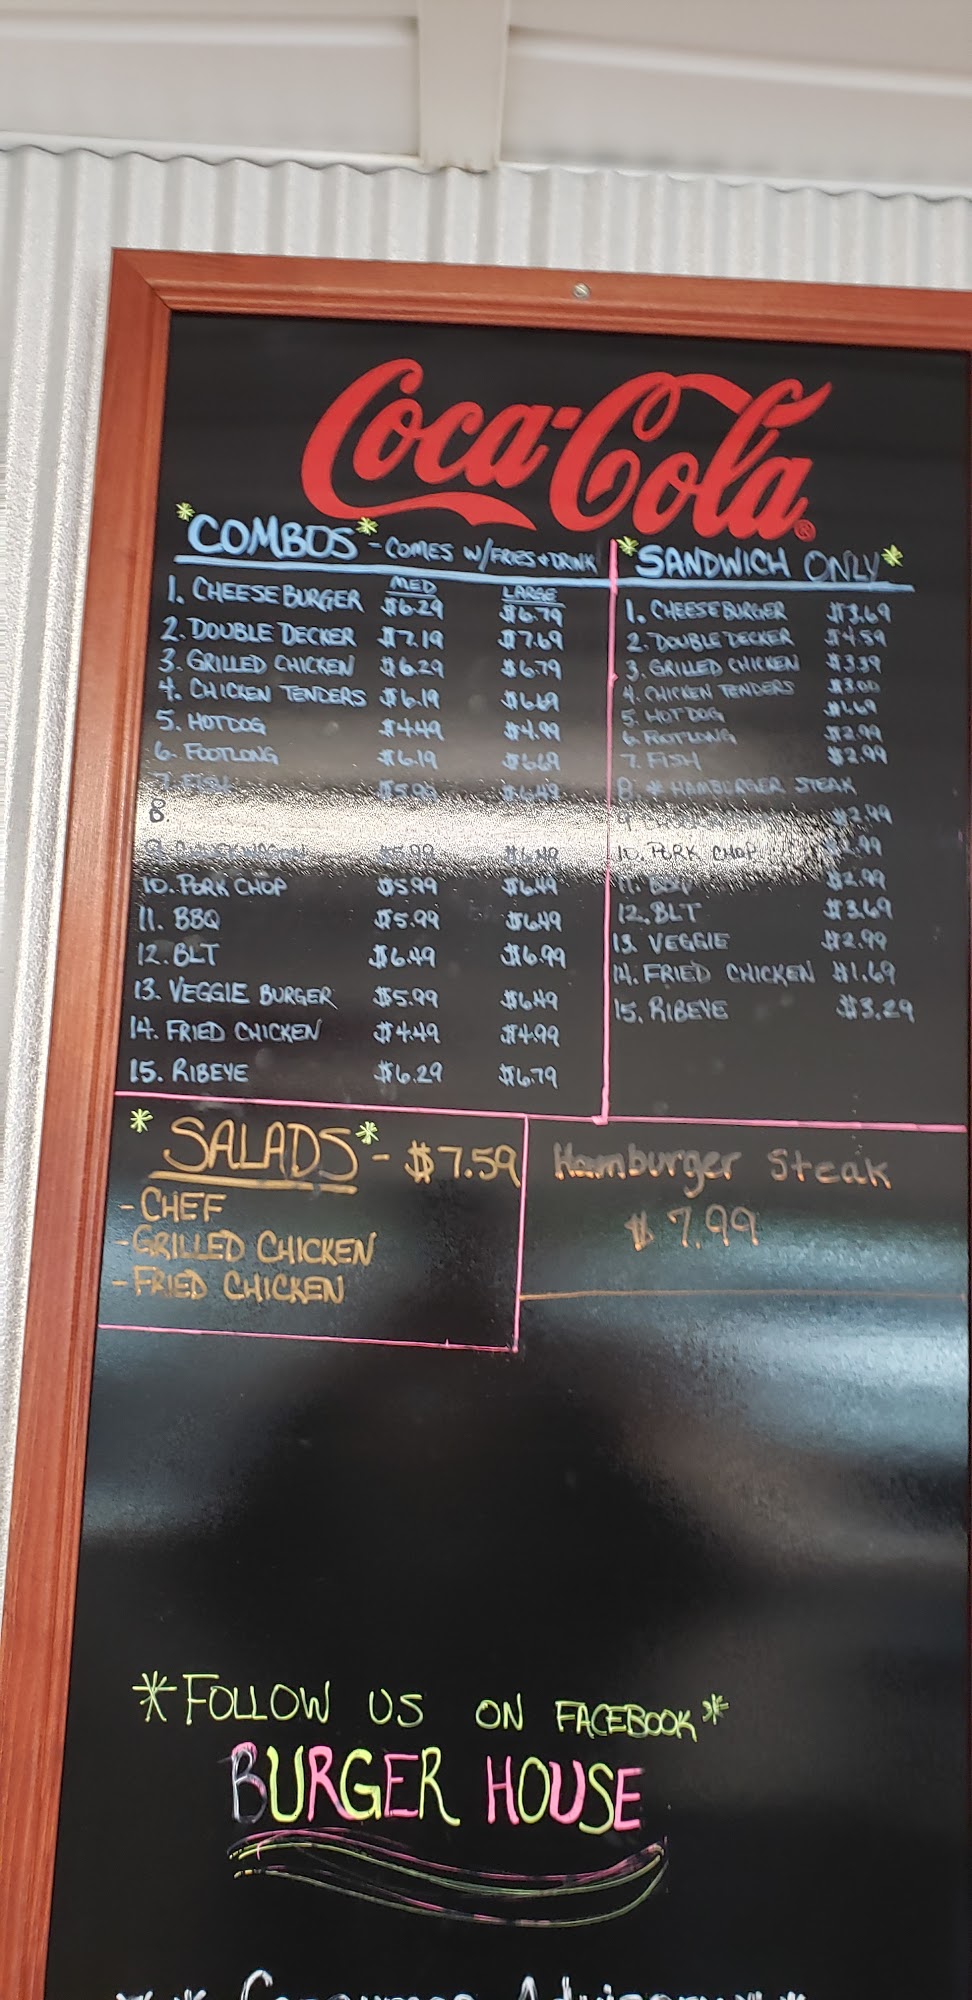 Coca-Cola
*COMBOS* - COMES W/FRIES & DRINK
MED LARGE
1. CHEESEBURGER $6.29 $6.79
2. DOUBLE DECKER $7.19 $7.69
3. GRILLED CHICKEN $6.29 $6.79
4. CHICKEN TENDERS $6.19 $6.69
5. HOTDOG $4.49 $4.99
6. FOOTLONG $6.19 $6.69
7. FISH $5.99 $6.49
8.
9. $5.99 $6.49
10. PORK CHOP $5.99 $6.49
11. BBQ $5.99 $6.49
12. BLT $6.49 $6.99
13. VEGGIE BURGER $5.99 $6.49
14. FRIED CHICKEN $4.49 $4.99
15. RIBEYE $6.29 $6.79
*SANDWICH ONLY*
1. CHEESEBURGER $3.69
2. DOUBLE DECKER $4.59
3. GRILLED CHICKEN $3.39
4. CHICKEN TENDERS $3.00
5. HOTDOG $1.69
6. FOOTLONG $2.99
7. FISH $2.99
8. * HAMBURGER STEAK
9. $2.99
10. PORK CHOP
11. BBQ $2.99
12. BLT $3.69
13. VEGGIE $2.99
14. FRIED CHICKEN $1.69
15. RIBEYE $3.29
*SALADS* - $7.59
- CHEF
- GRILLED CHICKEN
- FRIED CHICKEN
Hamburger Steak
$7.99
*FOLLOW US ON FACEBOOK*
BURGER HOUSE